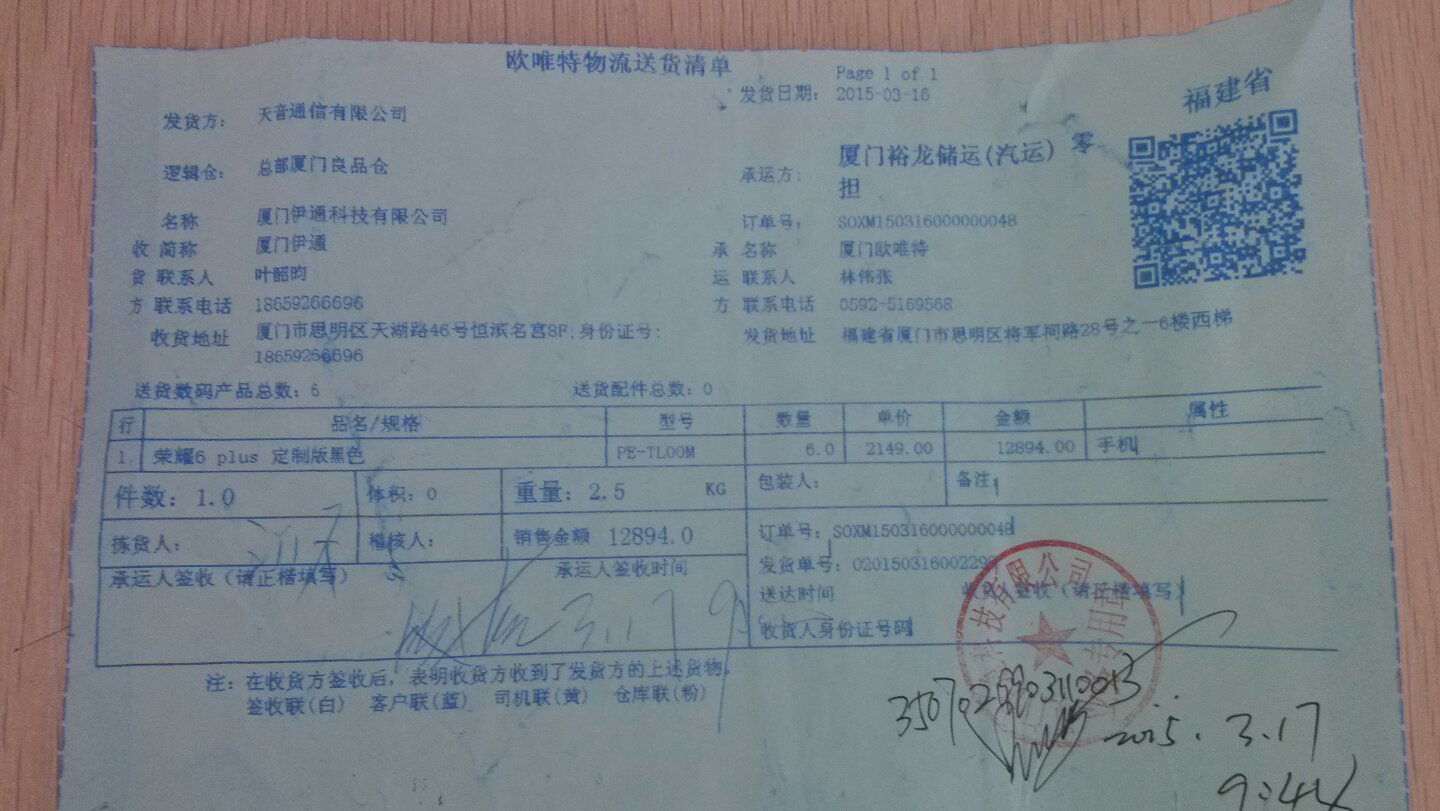 欧唯特物流送货清单
Page 1 of 1
发货日期: 2015-03-16
福建省
发货方: 天音通信有限公司
逻辑仓: 总部厦门良品仓
承运方: 厦门裕龙储运(汽运) 零担
名称 厦门伊通科技有限公司
订单号: SOXM150316000000048
收 简称 厦门伊通
承 名称 厦门欧唯特
货 联系人 叶韶昀
运 联系人 林伟张
方 联系电话 18659266696
方 联系电话 0592-5169568
收货地址 厦门市思明区天湖路46号恒滨名宫8F;身份证号:
18659266696
发货地址 福建省厦门市思明区将军祠路28号之一6楼西梯
送货数码产品总数: 6 送货配件总数: 0
行 品名/规格 型号 数量 单价 金额 属性
1 荣耀6 plus 定制版黑色 PE-TL00M 6.0 2149.00 12894.00 手机
件数: 1.0 体积: 0 重量: 2.5 KG 包装人: 备注
拣货人: 稽核人: 销售金额 12894.0
订单号: SOXM150316000000048
承运人签收(请正楷填写) 承运人签收时间
3.17
发货单号:
送达时间 签收(请正楷填写)
收货人身份证号码
科技有限公司
专用章
注: 在收货方签收后, 表明收货方收到了发货方的上述货物。
签收联(白) 客户联(蓝) 司机联(黄) 仓库联(粉)
2015.3.17
9:44